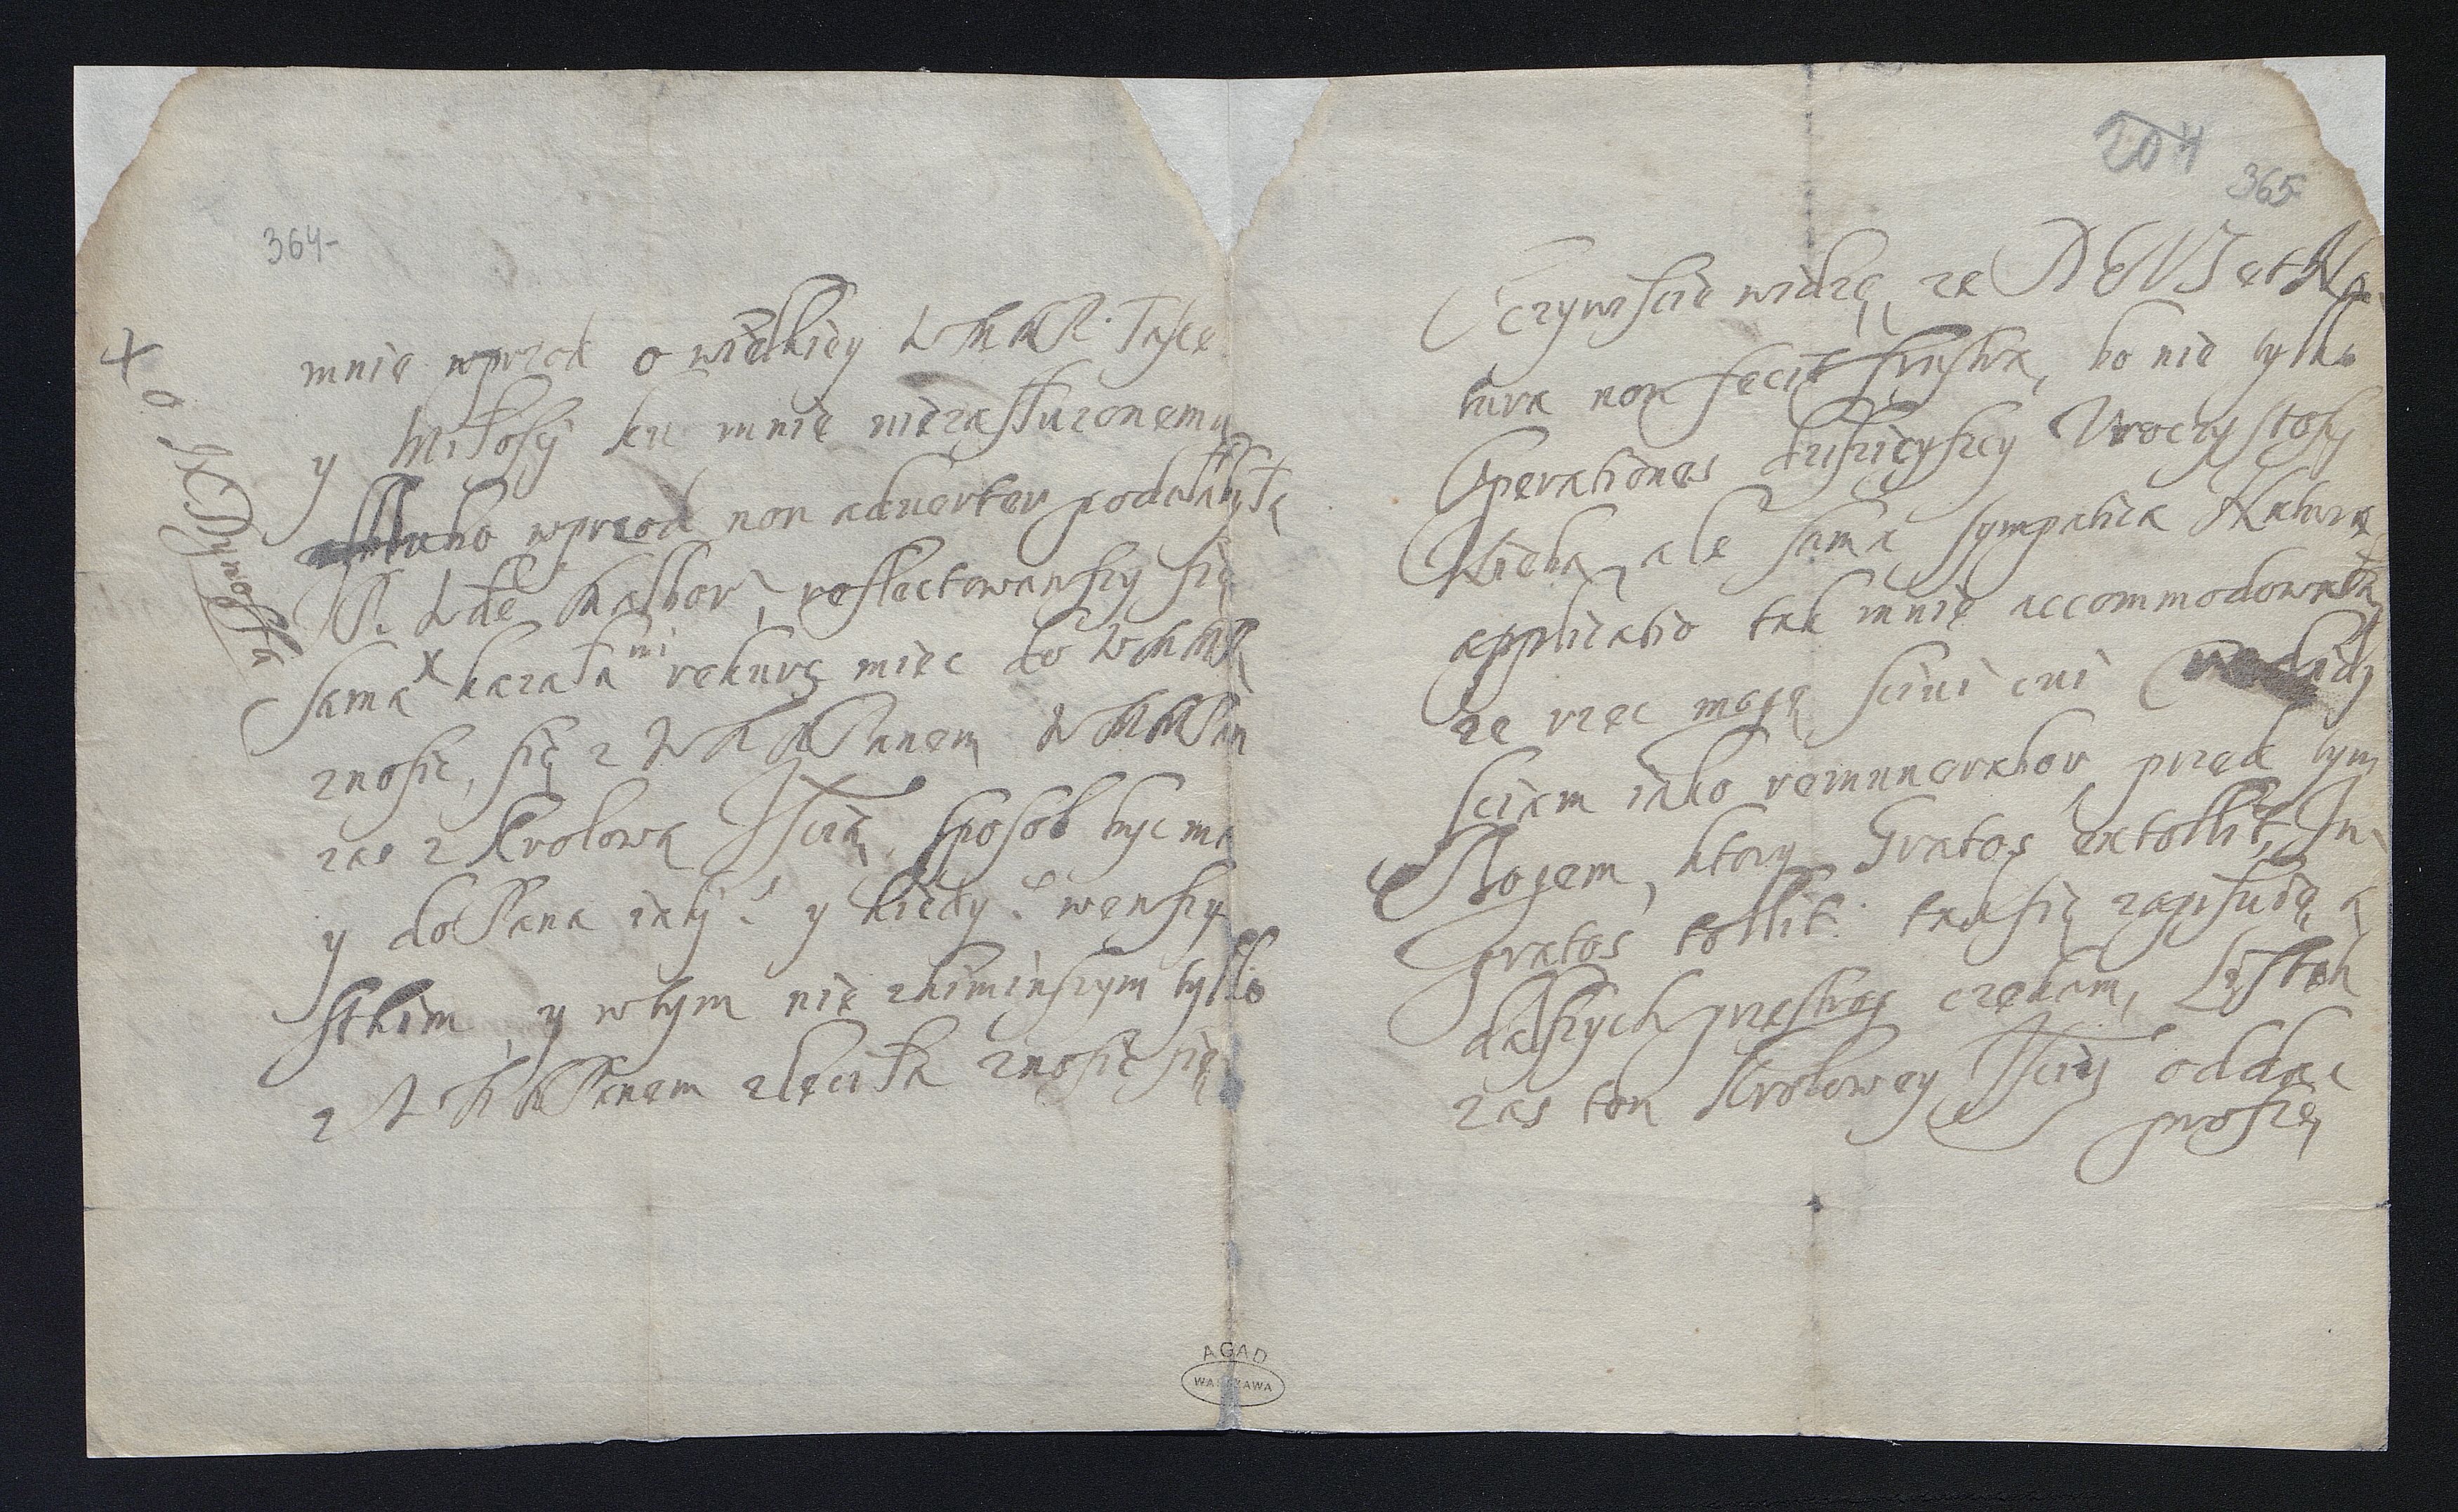 364-
mnie wprzod o wielkiey WMMP. łasce
y Miłosci ku mnie niezasłuzonemu
wprzod non adverter podał
P. y de reflectowawszy się
sama x kazała mi rekurs miec do WMMP
znosic, się z WMMPanem WMMPan
zas z Krolową Jscią, sposob byc ma
y do Pana iaky? y kiedy? wenszy
stkim, y wtym nie z kiminszym tylko
z WMMPanem zleciła znosic się
+ o JX Dymoffa
204
365
Oczywiscie widzę, ze DEVS et Na
tura non fecit frustra, bo nie tylko
Operationes dzisieyszey Vroczystosci
Nieba, ale sama sympatica Natura
applicatio tak mnie accommodowała,
ze rzec mogę scivi cui
sciam iako remunerator, przed tym
Bogem, ktory Gratos extollit, In
gratos tollit. tak się zapisuię a
dalszych przestrog czekam, Listek
zas ten Krolowey Jsciy oddac
proszę
AGAD
WARSZAWA